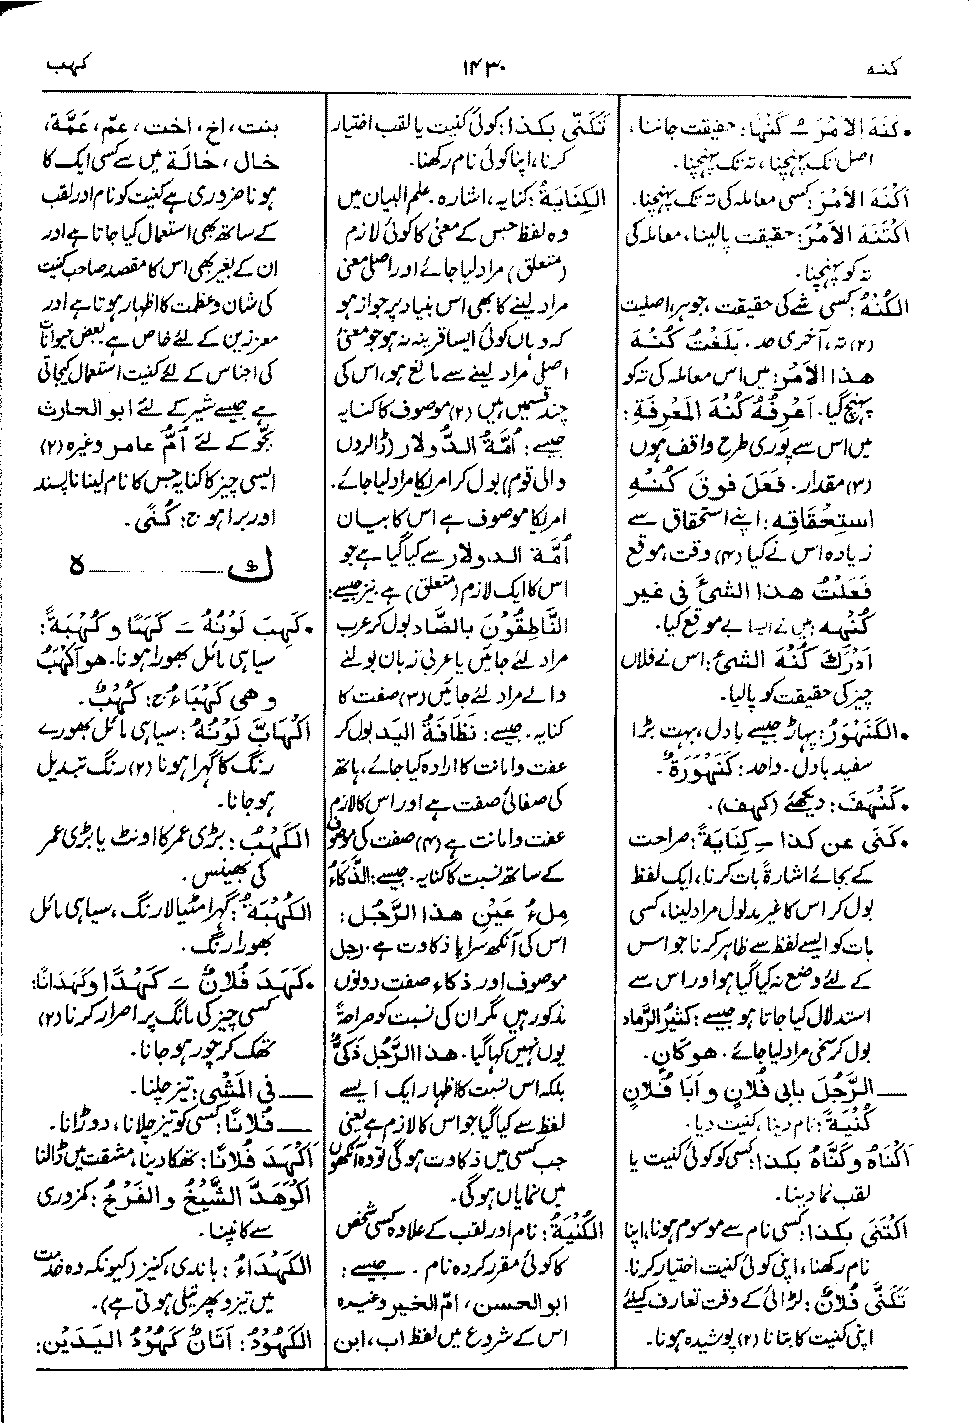 کنہ
۱۴۳۰
کہب
•كَنَهَ الأمْرَ ـُ كَنْهًا: حقیقت جاننا،
اصل تک پہنچنا، تہ تک پہنچنا۔
أكْنَهَ الأمْرَ: کسی معاملہ کی تہ تک پہنچنا۔
اكْتَنَهَ الأمْرَ: حقیقت پالینا، معاملہ کی
تہ کو پہنچنا۔
الكُنْهُ: کسی شے کی حقیقت، جوہر، اصلیت
(۲) تہ، آخری حد۔ بَلَغْتُ كُنْهَ
هذا الأمْرِ: میں اس معاملہ کی تہ کو
پہنچ گیا۔ أعْرِفُهُ كُنْهَ المَعْرِفَةِ:
میں اس سے پوری طرح واقف ہوں
(۳) مقدار۔ فَعَلَ فوقَ كُنْهِ
اسْتِحْقَاقِه: اپنے استحقاق سے
زیادہ اس نے کیا (۴) وقت، موقع
فَعَلْتُ هذا الشيْءَ فى غير
كُنْهِه: میں نے ایسا بے موقع کیا۔
أدْرَكَ كُنْهَ الشيْءِ: اس نے فلاں
چیز کی حقیقت کو پالیا۔
•الكَنَهْوَرُ: پہاڑ جیسے بادل، بہت بڑا
سفید بادل۔ واحد: كَنَهْوَرَةٌ۔
•كَنْهَفَ: دیکھئے (كهف)۔
•كَنَى عن كذا ـِ كِنَايَةً: صراحت
کے بجائے اشارۃً بات کرنا، ایک لفظ
بول کر اس کا غیر مدلول مراد لینا، کسی
بات کو ایسے لفظ سے ظاہر کرنا جو اس
کے لئے وضع نہ کیا گیا ہو اور اس سے
استدلال کیا جاتا ہو جیسے: كثيرُ الرَّماد
بول کر سخی مراد لیا جائے۔ هو كانٍ۔
ــــ الرَّجُلَ بِأبى فُلانٍ و أبَا فُلانٍ
كُنْيَةً: نام دینا، کنیت دینا۔
أكْنَاهُ وكَنَّاهُ بكذا: کسی کو کوئی کنیت یا
لقب نما دینا۔
اكْتَنَى بكذا: کسی نام سے موسوم ہونا، اپنا
نام رکھنا، اپنی کوئی کنیت اختیار کرنا۔
تَكَنَّى فُلانٌ: لڑائی کے وقت تعارف کیلئے
اپنی کنیت کا بتانا (۲) پوشیدہ ہونا۔
تَكَنَّى بكذا: کوئی کنیت یا لقب اختیار
کرنا، اپنا کوئی نام رکھنا۔
الكِنَايَةُ: کنایہ، اشارہ۔ علم البیان میں
وہ لفظ جس کے معنی کا کوئی لازم
(متعلق) مراد لیا جائے اور اصلی معنی
مراد لینے کا بھی اس بنیاد پر جواز ہو
کہ وہاں کوئی ایسا قرینہ نہ ہو جو معنی
اصلی مراد لینے سے مانع ہو، اس کی
چند قسمیں ہیں (۲) موصوف کا کنایہ
جیسے: أمَّةُ الدُّولار (ڈالروں
والی قوم) بول کر امریکا مراد لیا جائے۔
امریکا موصوف ہے اس کا بیان
أمّة الدولار سے کیا گیا ہے جو
اس کا ایک لازم (متعلق) ہے۔ نیز جیسے:
النَّاطِقُوْنَ بالضَّاد بول کر عرب
مراد لئے جائیں یا عربی زبان بولنے
والے مراد لئے جائیں (۳) صفت کا
کنایہ۔ جیسے: نَظَافَةُ اليَد بول کر
عفت و امانت کا ارادہ کیا جائے، ہاتھ
کی صفائی صفت ہے اور اس کا لازم
عفت و امانت ہے (۴) صفت کی موصوف
کے ساتھ نسبت کا کنایہ۔ جیسے: الذَّكَاءُ
مِلْءُ عَيْنِ هذا الرَّجُلِ:
اس کی آنکھ سراپا ذکاوت ہے۔ رجل
موصوف اور ذکاء صفت دونوں
مذکور ہیں مگر ان کی نسبت کو صراحۃً
یوں نہیں کہا گیا۔ هذا الرَّجُل ذَكِيٌّ
بلکہ اس نسبت کا اظہار ایک ایسے
لفظ سے کیا گیا جو اس کا لازم ہے یعنی
جب کسی میں ذکاوت ہوگی تو وہ آنکھوں
میں نمایاں ہوگی۔
الكُنْيَةُ: نام اور لقب کے علاوہ کسی شخص
کا کوئی مقرر کردہ نام۔ جیسے:
ابو الحسن، امّ الخير وغیرہ
اس کے شروع میں لفظ اب، ابن
بنت، اخ، اخت، عمّ، عمّة،
خال، خالة میں سے کسی ایک کا
ہونا ضروری ہے کنیت کو نام اور لقب
کے ساتھ بھی استعمال کیا جاتا ہے اور
ان کے بغیر بھی اس کا مقصد صاحب کنیت
کی شان و عظمت کا اظہار ہوتا ہے اور
معززین کے لئے خاص ہے۔ بعض حیوانات
کی اجناس کے لئے کنیت استعمال کیجاتی
ہے جیسے شیر کے لئے ابو الحارث
بجّو کے لئے أمّ عامر وغیرہ (۲)
ایسی چیز کا کنایہ جس کا نام لینا ناپسند
اور برا ہو ج: كُنًى۔
ك ــــــــ ه
•كَهِبَ لَوْنُهُ ـَ كَهَبًا و كُهْبَةً:
سیاہی مائل بھورا ہونا۔ هو أكْهَبُ
و هى كَهْبَاءُ ج: كُهْبٌ۔
اكْهَابَّ لَوْنُهُ: سیاہی مائل بھورے
رنگ کا گہرا ہونا (۲) رنگ تبدیل
ہو جانا۔
الكَهْبُ: بڑی عمر کا اونٹ یا بڑی عمر
کی بھینس۔
الكُهْبَةُ: گہرا مٹیالا رنگ، سیاہی مائل
بھورا رنگ۔
•كَهَدَ فُلانٌ ـَ كَهْدًا وكَهَدَانًا:
کسی چیز کی مانگ پر اصرار کرنا (۲)
تھک کر چور ہو جانا۔
ــــ فى المَشْىِ: تیز چلنا۔
ــــ فُلانًا: کسی کو تیز چلانا، دوڑانا۔
أكْهَدَ فُلانًا: تھکا دینا، مشقت میں ڈالنا
اكْوَهَدَّ الشَّيْخُ والفَرْخُ: کمزوری
سے کانپنا۔
الكَهْدَاءُ: باندی، کنیز (کیونکہ وہ خدمت
میں تیز و پھرتیلی ہوتی ہے)۔
الكَهُوْدُ: أتَانٌ كَهُوْدُ اليَدَيْنِ: